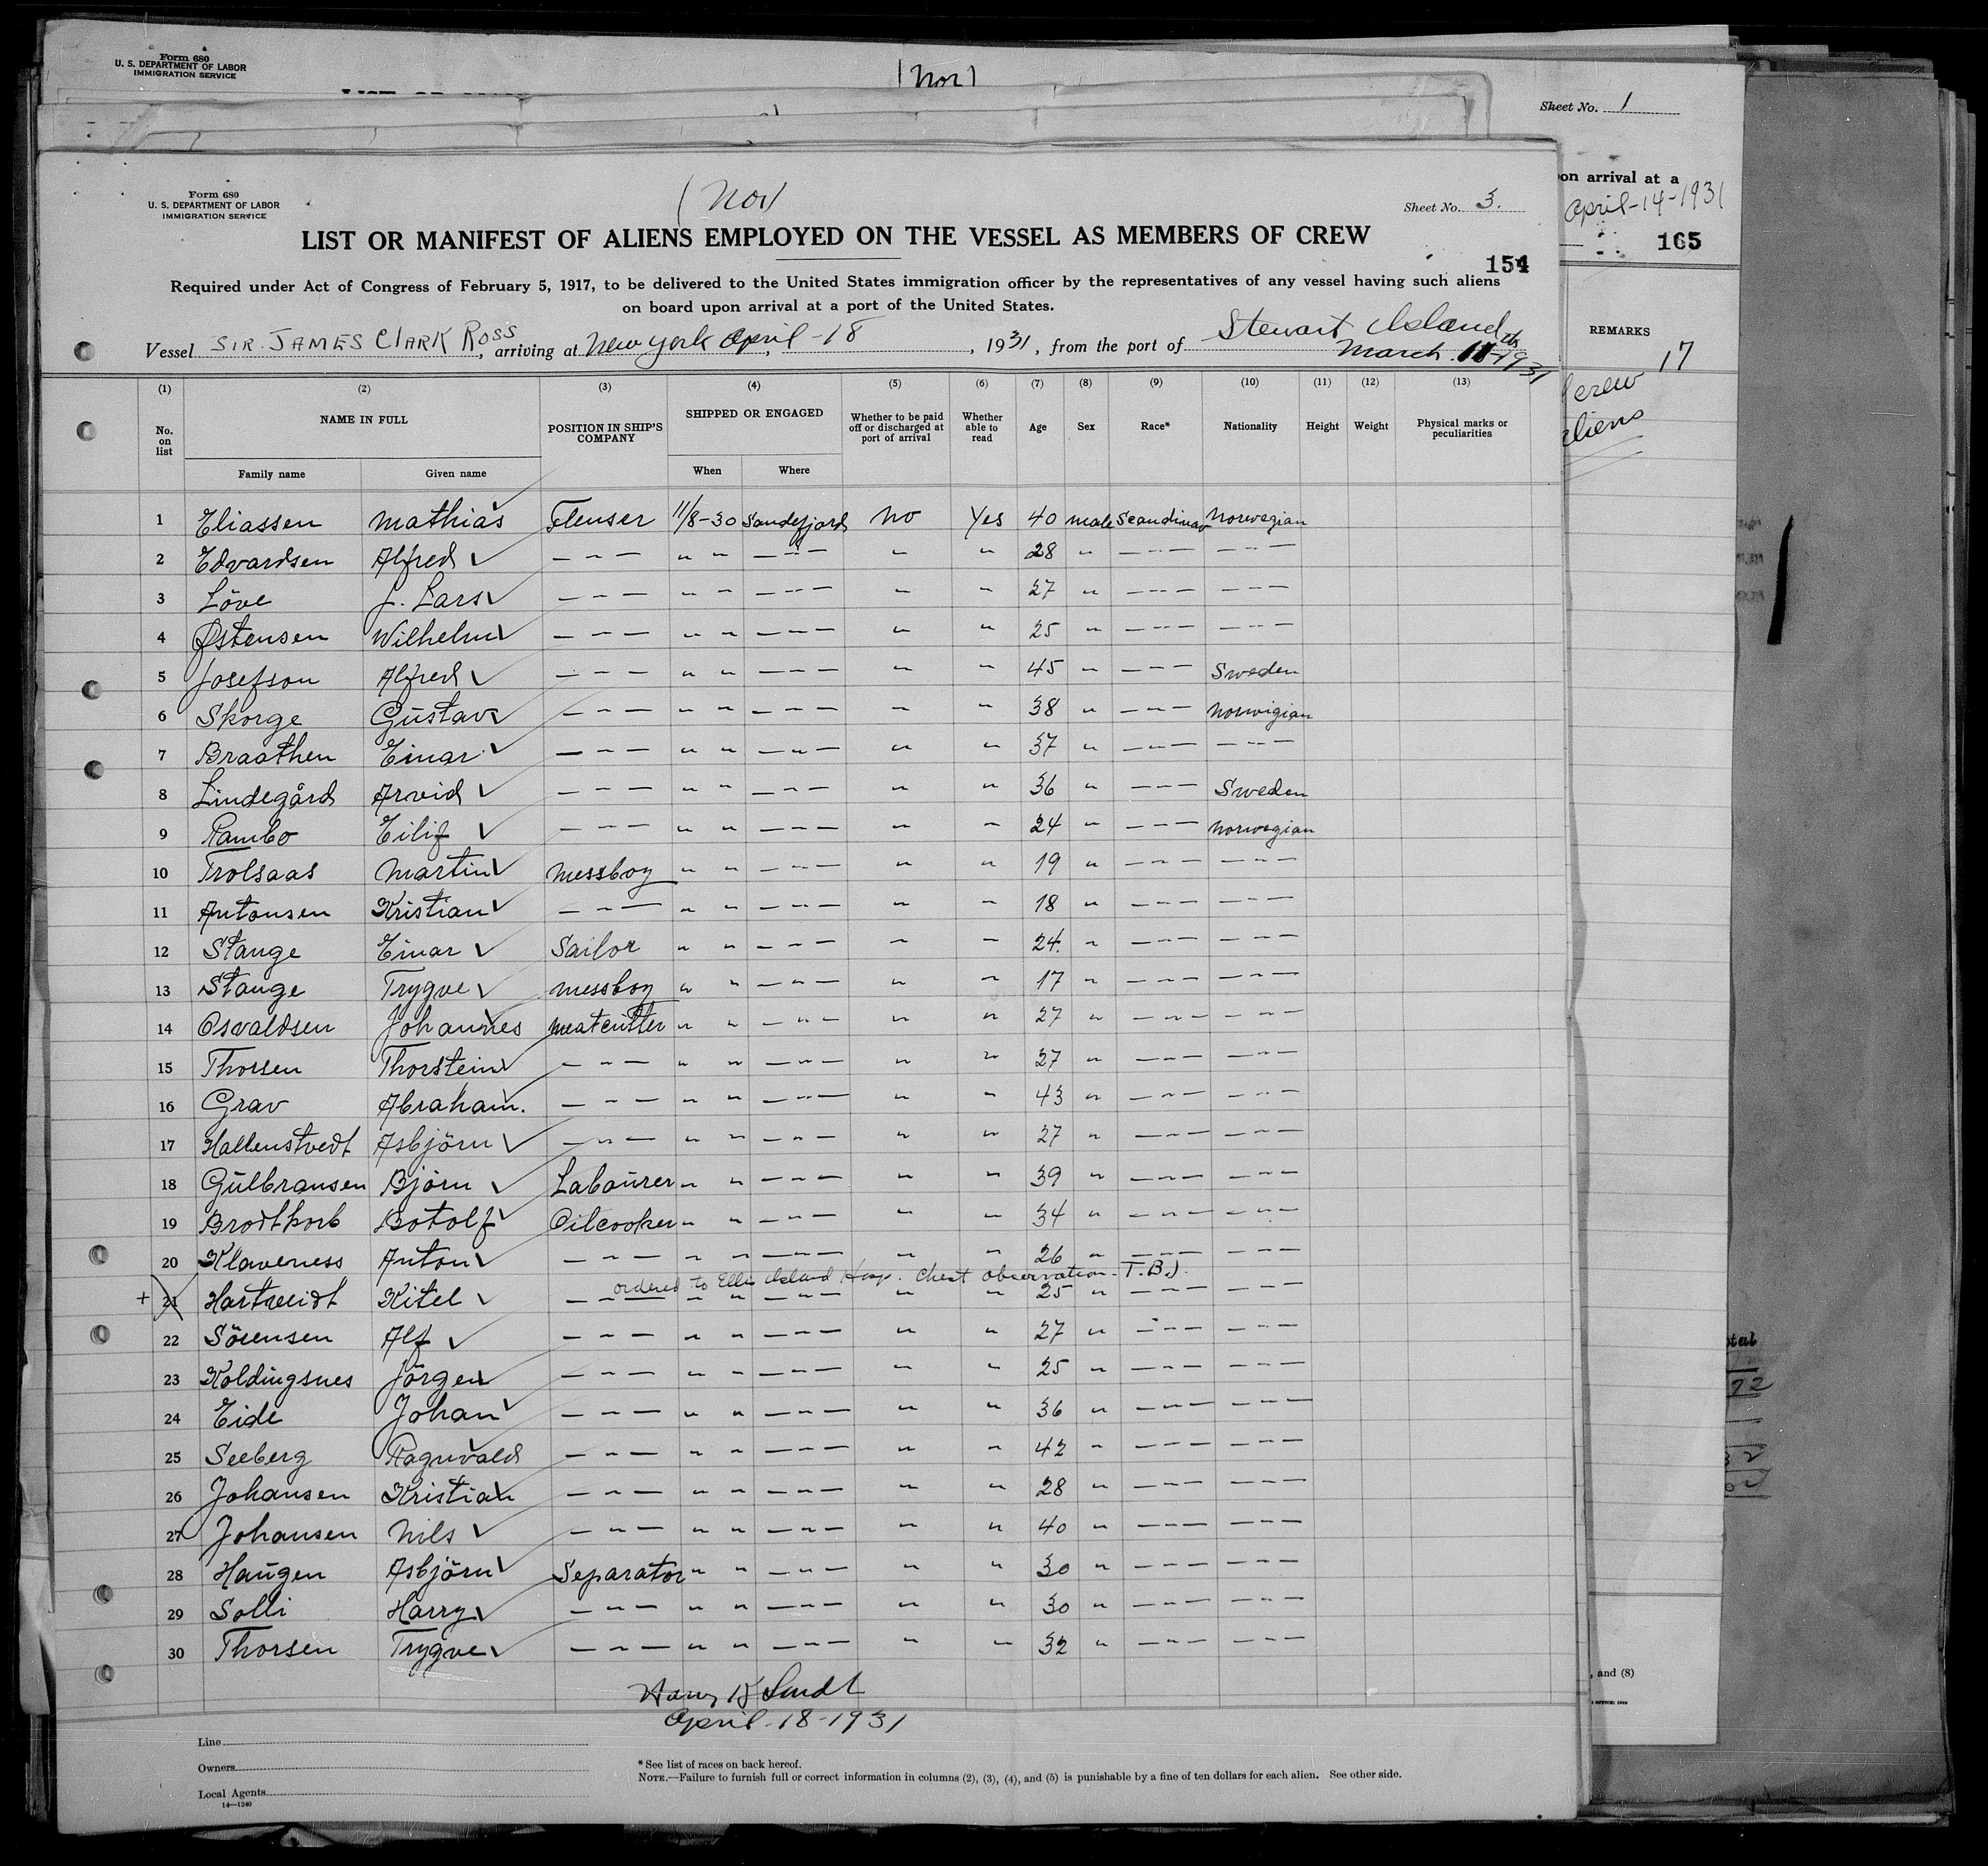 Form 680
U. S. DEPARTMENT OF LABOR
IMMIGRATION SERVICE
(Nor)
Sheet No. 1
on arrival at a
April-14-1931
165
REMARKS
17
crew
aliens
Form 680
U. S. DEPARTMENT OF LABOR
IMMIGRATION SERVICE
(Nor)
Sheet No. 3.
LIST OR MANIFEST OF ALIENS EMPLOYED ON THE VESSEL AS MEMBERS OF CREW
154
Required under Act of Congress of February 5, 1917, to be delivered to the United States immigration officer by the representatives of any vessel having such aliens
on board upon arrival at a port of the United States.
Vessel SIR JAMES CLARK ROSS, arriving at New York April - 18, 1931, from the port of Stewart Island
March 11th-1931
(1) (2) (3) (4) (5) (6) (7) (8) (9) (10) (11) (12) (13)
No. on list NAME IN FULL POSITION IN SHIP'S COMPANY SHIPPED OR ENGAGED Whether to be paid off or discharged at port of arrival Whether able to read Age Sex Race* Nationality Height Weight Physical marks or peculiarities
Family name Given name When Where
1 Eliassen Mathias Flenser 11/8-30 Sandefjord No Yes 40 male Scandinav Norwegian
2 Edvardsen Alfred — " — " " — " — " " 28 " — " — — " —
3 Löve J. Lars — " — " " — " — " " 27 " — " — — " —
4 Østensen Wilhelm — " — " " — " — " " 25 " — " — — " —
5 Josefson Alfred — " — " " — " — " " 45 " — " — Sweden
6 Skorge Gustav — " — " " — " — " " 38 " — " — Norwigian
7 Braathen Einar — " — " " — " — " " 37 " — " — — " —
8 Lindegård Arvid — " — " " — " — " " 36 " — " — Sweden
9 Rambo Eilif — " — " " — " — " " 24 " — " — Norwegian
10 Trolsaas Martin Messboy " " — " — " " 19 " — " — — " —
11 Antonsen Kristian — " — " " — " — " " 18 " — " — — " —
12 Stange Einar Sailor " " — " — " " 24. " — " — — " —
13 Stange Trygve Messboy " " — " — " " 17 " — " — — " —
14 Osvaldsen Johannes Meatcutter " " — " — " " 27 " — " — — " —
15 Thorsen Thorstein — " — " " — " — " " 27 " — " — — " —
16 Grav Abraham. — " — " " — " — " " 43 " — " — — " —
17 Hallenstvedt Asbjörn — " — " " — " — " " 27 " — " — — " —
18 Gulbransen Björn Labourer " " — " — " " 39 " — " — — " —
19 Brodtkorb Botolf Oilcooker " " — " — " " 34 " — " — — " —
20 Klaveness Anton — " — " " — " — " " 26 " — " — — " —
ordered to Ellis Island Hosp. Chest observation - T.B.)
+ 21 Hartveidt Kitel — " — " " — " — " " 25 " — " — — " —
22 Sörensen Alf — " — " " — " — " " 27 " — " — — " —
23 Koldingsnes Jörgen — " — " " — " — " " 25 " — " — — " —
24 Eide Johan — " — " " — " — " " 36 " — " — — " —
25 Seeberg Ragnvald — " — " " — " — " " 42 " — " — — " —
26 Johansen Kristian — " — " " — " — " " 28 " — " — — " —
27 Johansen Nils — " — " " — " — " " 40 " — " — — " —
28 Haugen Asbjörn Separator " " — " — " " 30 " — " — — " —
29 Solli Harry — " — " " — " — " " 30 " — " — — " —
30 Thorsen Trygve — " — " " — " — " " 32 " — " — — " —
April-18-1931
Line
Owners
Local Agents
14—1240
* See list of races on back hereof.
NOTE.—Failure to furnish full or correct information in columns (2), (3), (4), and (5) is punishable by a fine of ten dollars for each alien. See other side.
, and (8)